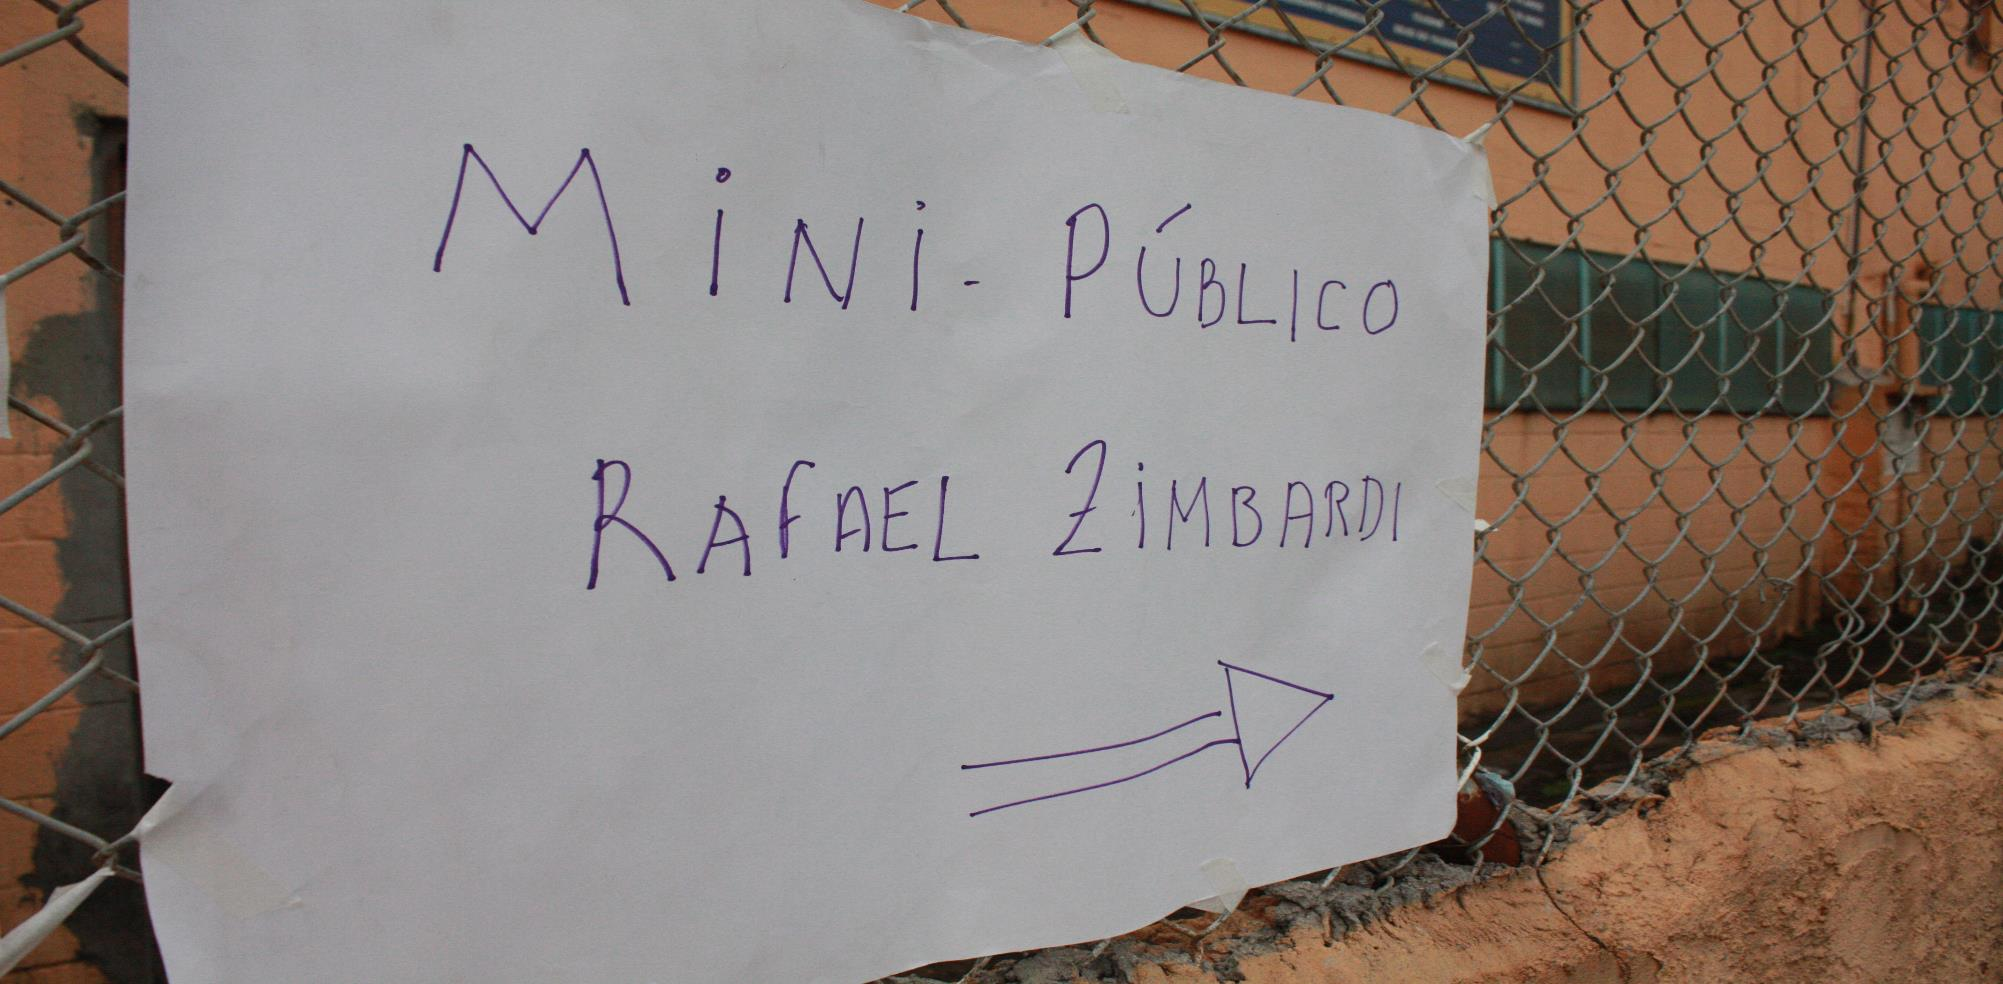 Mini - PÚBLICO
RAFAEL ZiMBARDI